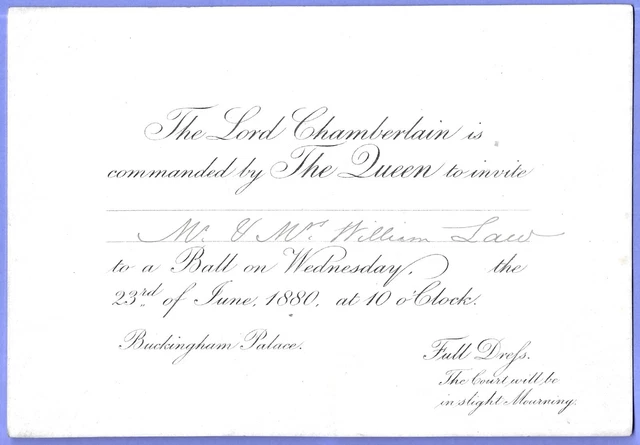 The Lord Chamberlain is
commanded by The Queen to invite
Mr. & Mrs. William Law
to a Ball on Wednesday, the
23rd of June, 1880, at 10 o'Clock.
Buckingham Palace.
Full Dreſs.
The Court will be
in slight Mourning.